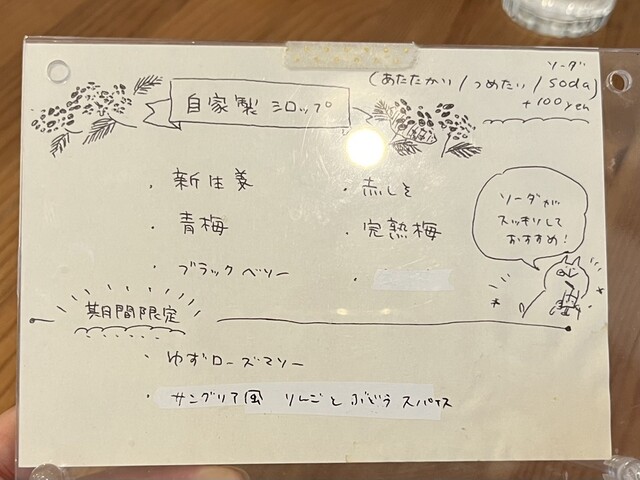 ソーダ
(あたたかい/つめたい/soda)
+100yen
自家製 シロップ
・新生姜
・赤しそ
・青梅
・完熟梅
・ブラックベリー
・
ソーダが
スッキリして
おすすめ!
期間限定
・ゆずローズマリー
・サングリア風 りんごとぶどう スパイス